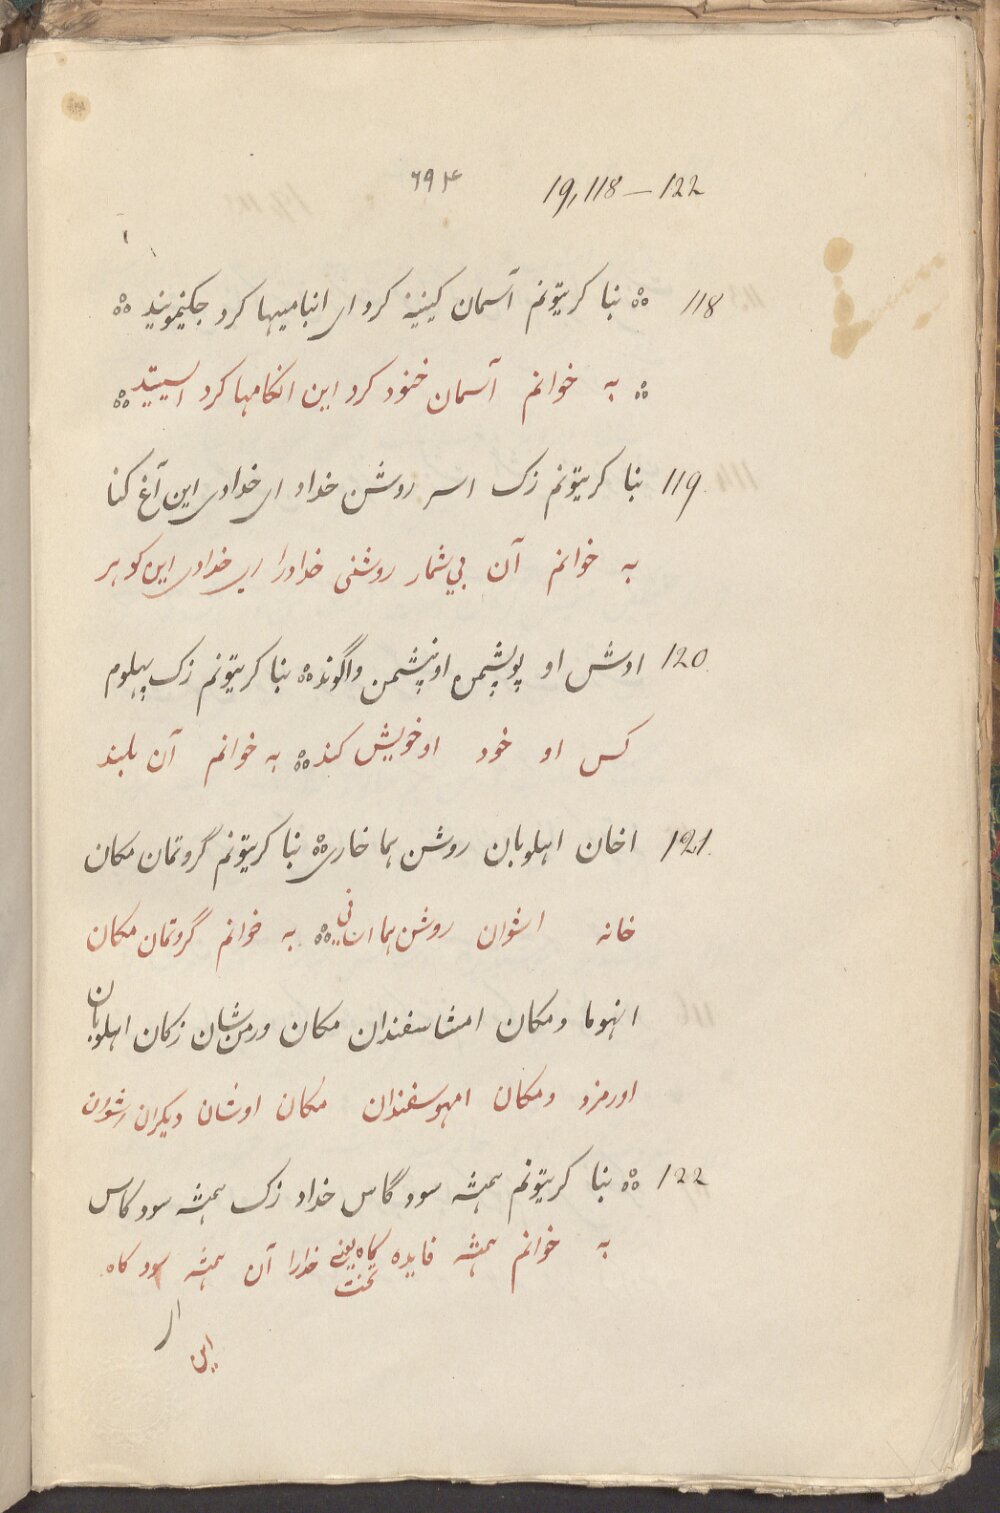 ۶۹۴ 19,118—122
118 ⁂ بنا کریتونم آسمان کینیه کرد ای انبامیها کرد جکیمویند ⁂
⁂ به خوانم آسمان خنود کرد این انکامها کرد استید ⁂
119 بنا کریتونم زک اسر روشن خداد ای خدادی این آغ کنا
به خوانم آن بی شمار روشنی خدادرا ای خدادی این کو هر
120 اوش او پوپشمن او نپشمن واگونده ⁂ بنا کریتونم زک پهلوم
کس او خود او خویش کند ⁂ به خوانم آن بلند
121 اخان اهلوبان روشن هما خاری ⁂ بنا کریتونم گروتمان مکان
خانه اشوان روشن هما اسانی ⁂ به خوانم گروتمان مکان
انهوما ومکان امشاسفندان مکان ورمن شان زکان اهلوبان
اورمزد ومکان امهوسفندان مکان اوشان دیکران اشوان
122 ⁂ بنا کریتونم همیشه سود گاس خداد زک همیشه سود کاس
به خوانم همیشه فایده کاه یعنی تخت خدارا آن همیشه سود کاه
ار
این